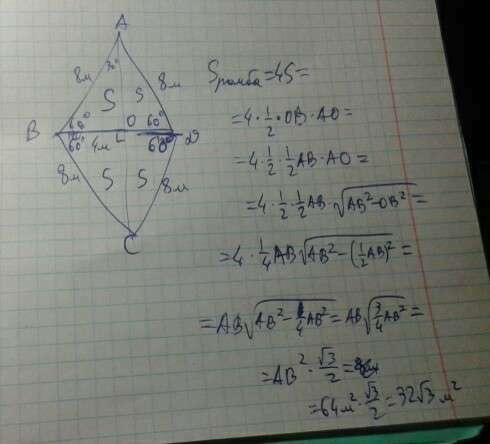 A
30°
8м 8м
S S
60° O 60°
B D
60° 4м 60°
8м 8м
S S
C
Sромба = 4S =
= 4 · 1/2 · OB · AO =
= 4 · 1/2 · 1/2 AB · AO =
= 4 · 1/2 · 1/2 AB · √(AB² - OB²) =
= 4 · 1/4 AB √(AB² - (1/2 AB)²) =
= AB √(AB² - 1/4 AB²) = AB √(3/4 AB²) =
= AB² · √3/2 =
= 64м² · √3/2 = 32√3 м²